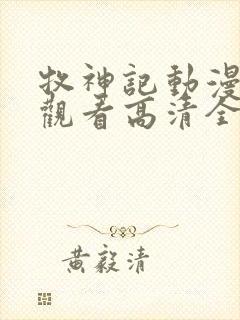 牧神記動漫
觀看高清全
黃毅清